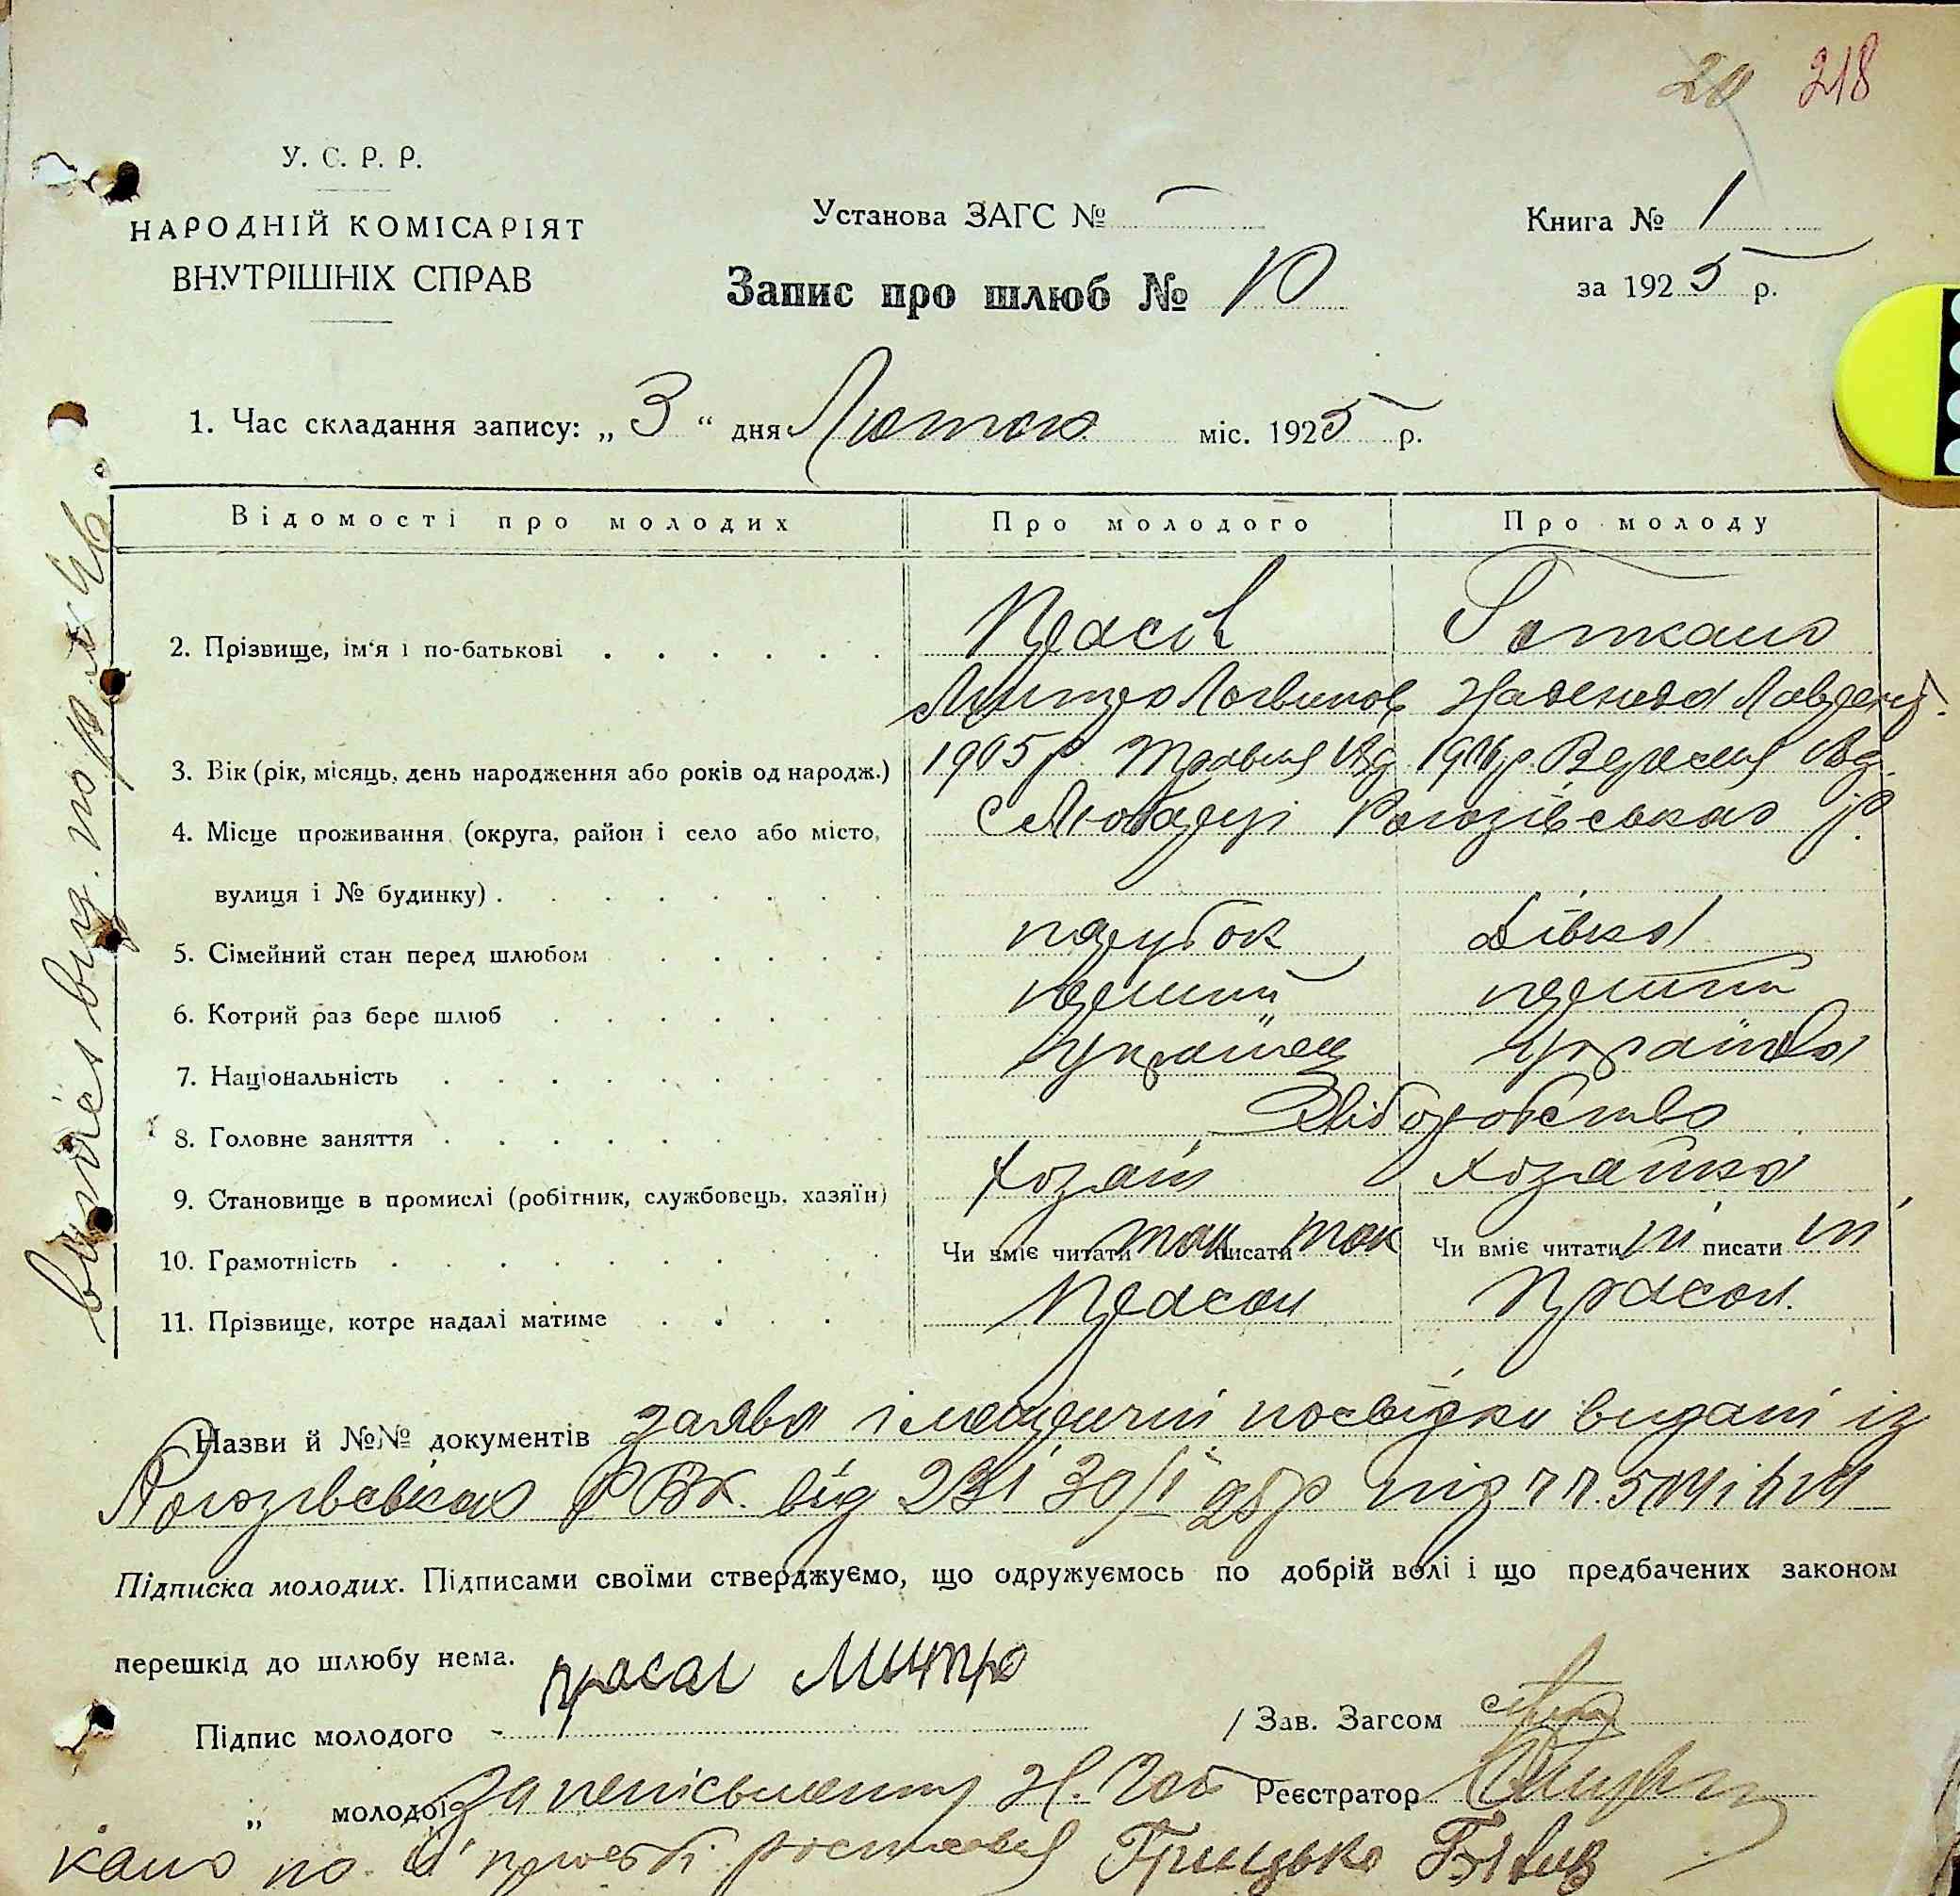 20 218
У. С. Р. Р.
НАРОДНІЙ КОМІСАРІЯТ
ВНУТРІШНІХ СПРАВ
Установа ЗАГС №
Книга № 1
Запис про шлюб № 10
за 1925 р.
1. Час складання запису: „ 3 “ дня Лютого міс. 1925 р.
Відомості про молодих Про молодого Про молоду
2. Прізвище, ім'я і по-батькові Прасол
Митро Логвинов Надежда Лаврент.
3. Вік (рік, місяць, день народження або років од народж.) 1905 р. Травня 1906 р. Вересня
4. Місце проживання (округа, район і село або місто, С Любарці Рогозівського р.
вулиця і № будинку)
5. Сімейний стан перед шлюбом парубок дівка
6. Котрий раз бере шлюб перший перший
7. Національність Українец Українка
8. Головне заняття Хліборобство
9. Становище в промислі (робітник, службовець, хазяїн) хозяїн хозяйка
10. Грамотність Чи вміє читати так писати так Чи вміє читати ні писати ні
11. Прізвище, котре надалі матиме Прасол Прасол.
Назви й №№ документів заява і медичні посвідки видані із
Рогозівского РВК. від 23 і 30/I 25 р під
Підписка молодих. Підписами своїми стверджуємо, що одружуємось по добрій волі і що предбачених законом
перешкід до шлюбу нема.
Підпис молодого прасол Митро
Зав. Загсом
„ молодої за неписьменну Н. Реєстратор
по її прозьбі ростовся Грицько